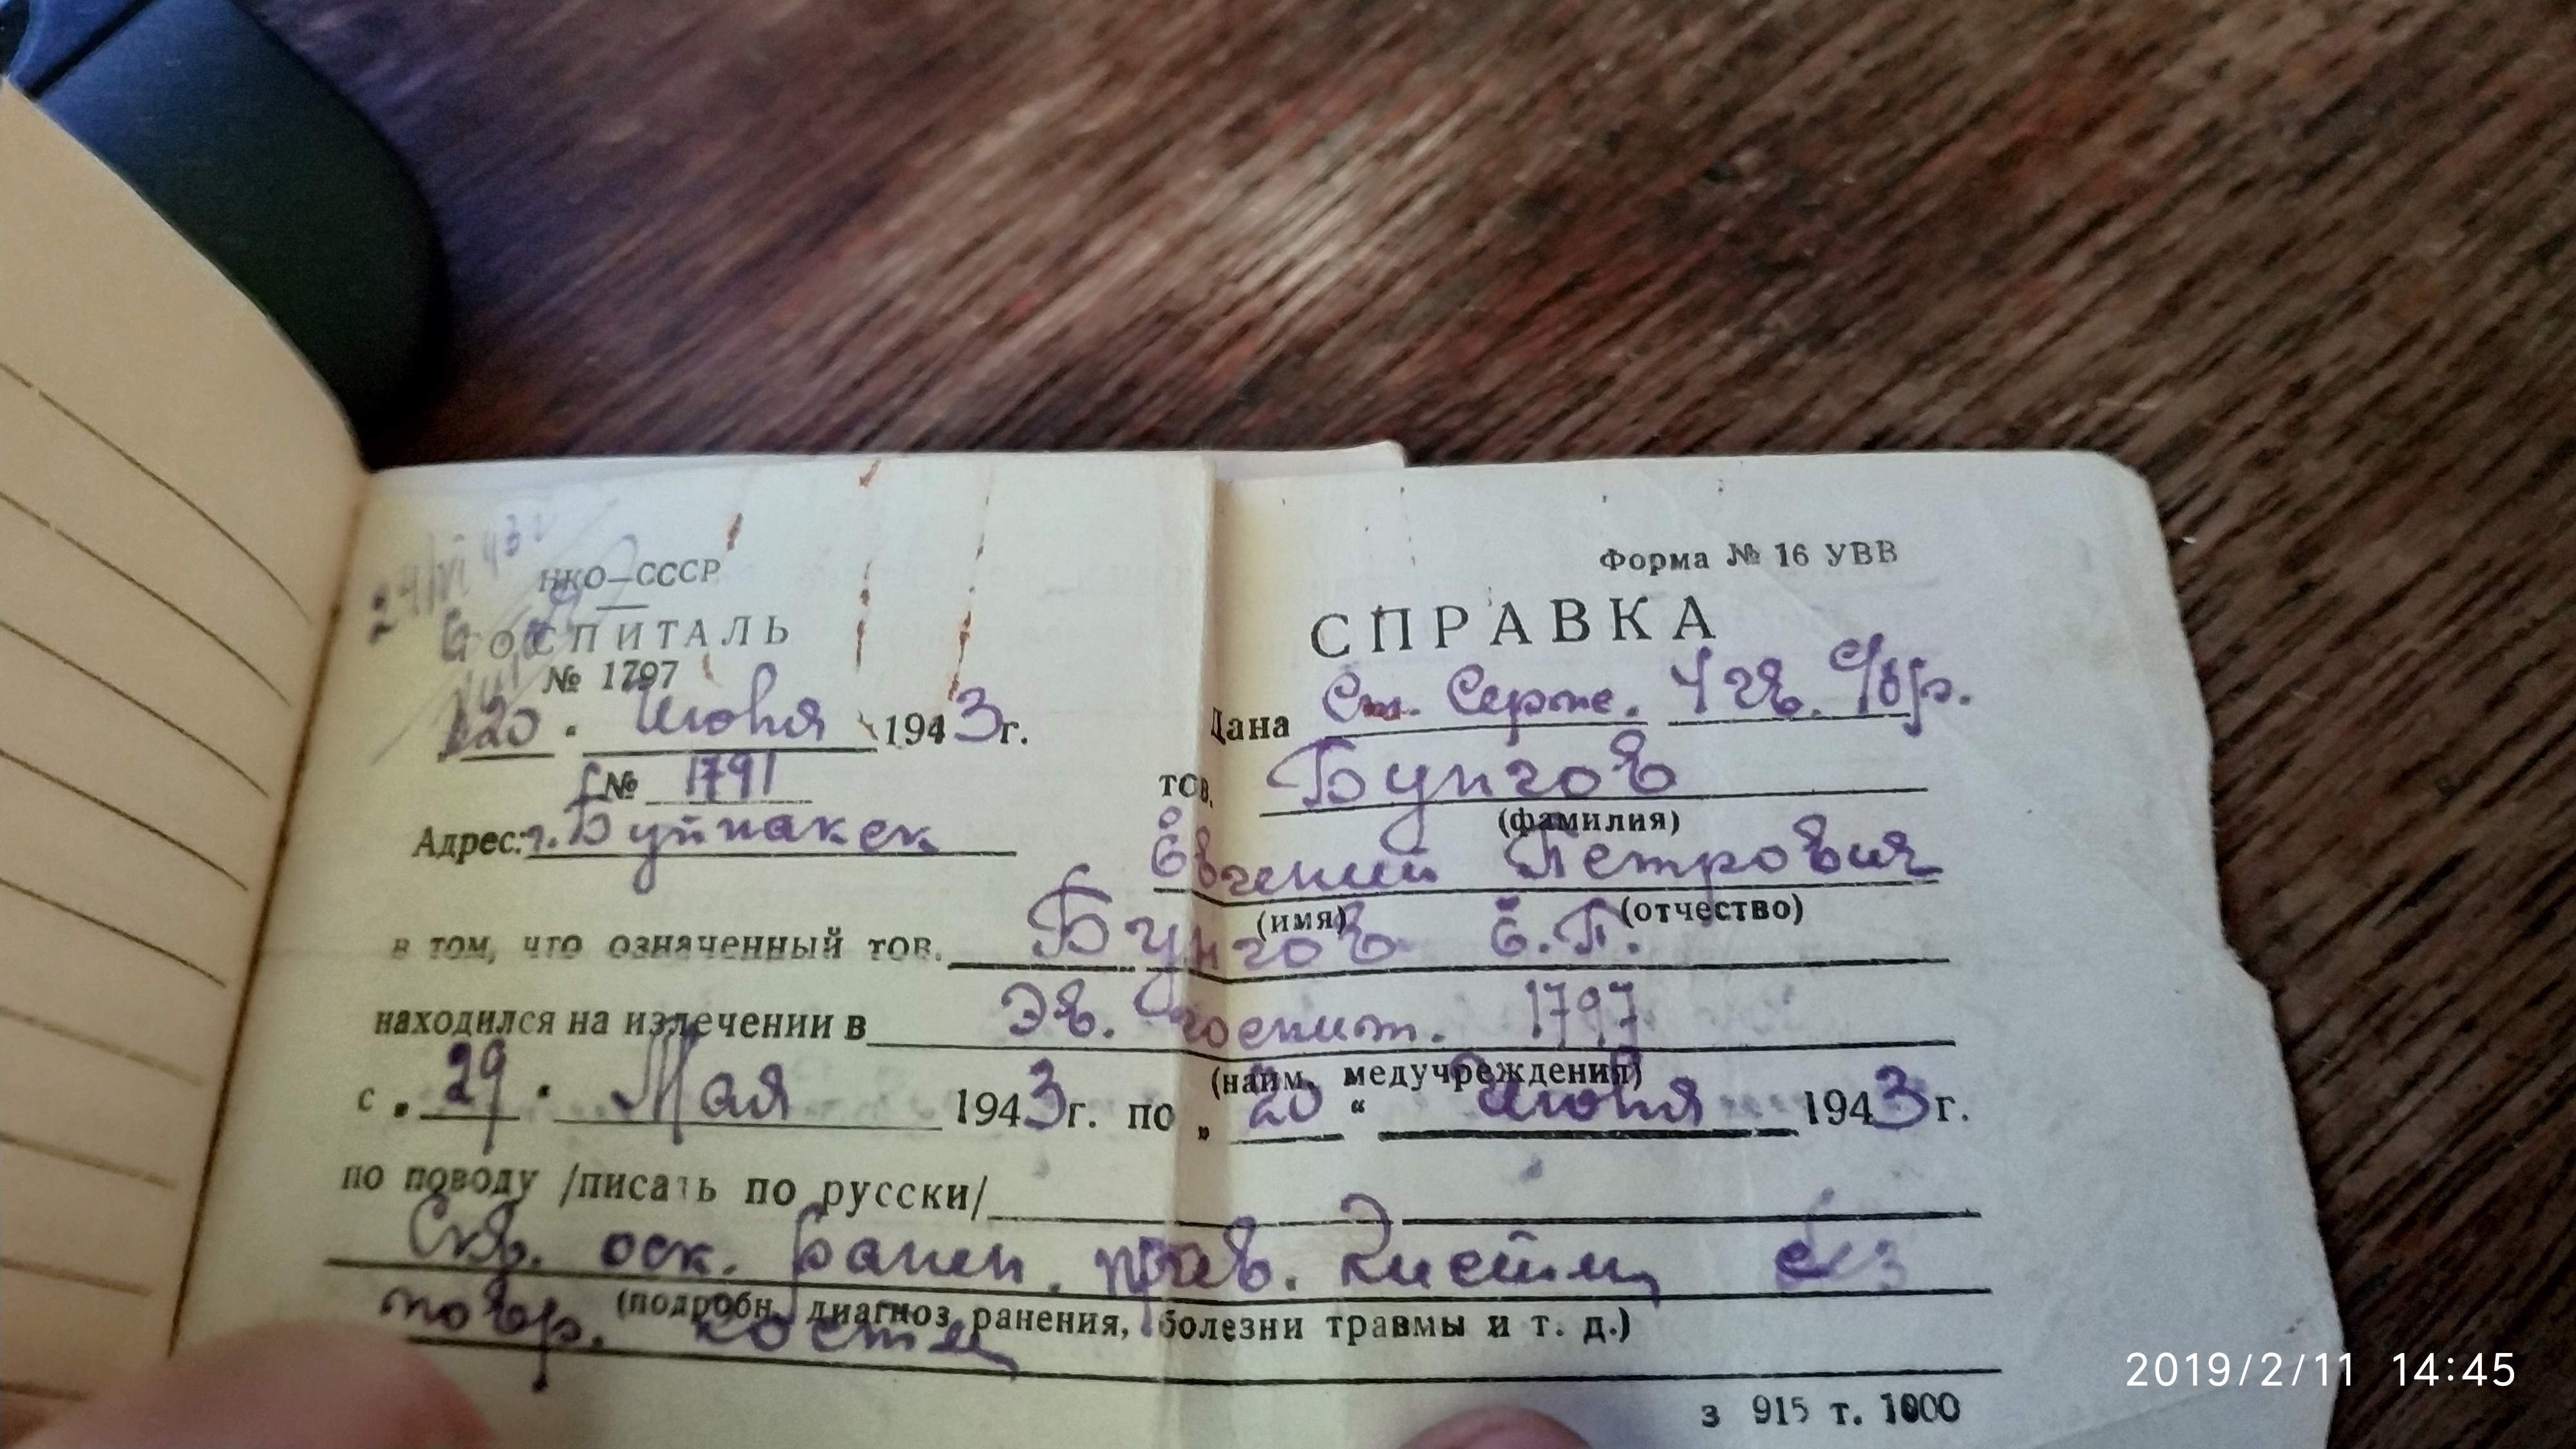 НКО—СССР
ГОСПИТАЛЬ
№ 1797
20 " Июня 1943г.
№ 1791
Адрес: г. Буйнакск
Форма № 16 УВВ
СПРАВКА
Дана Ст. Серж. 4 гв. с/бр.
тов. Бунгов
(фамилия)
Евгений Петрович
(имя) (отчество)
в том, что означенный тов. Бунгов Е. П.
находился на излечении в Эв. госпит. 1797
(наим. медучреждения)
с „ 29 " Мая 1943г. по „ 20 " Июня 1943г.
по поводу /писать по русски/
Скв. оск. ранен. прав. кисти без
(подробн. диагноз ранения, болезни травмы и т. д.)
повр. кости
з 915 т. 1000
2019/2/11 14:45